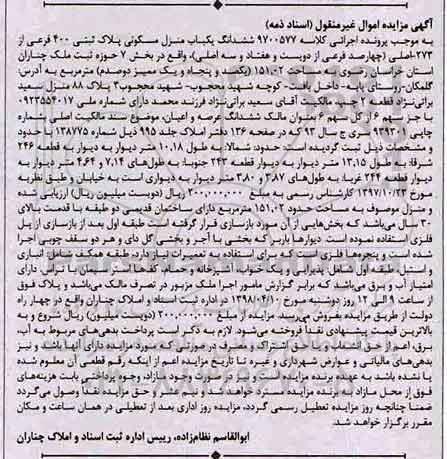 آگهی مزایده اموال غیرمنقول (اسناد ذمه)
به موجب پرونده اجرائی کلاسه ۹۷۰۰۵۷۷ ششدانگ یکباب منزل مسکونی پلاک ثبتی ۴۰۰ فرعی از
۲۷۳-اصلی (چهارصد فرعی از دویست و هفتاد و سه اصلی)، واقع در بخش ۷ حوزه ثبت ملک چناران
استان خراسان رضوی به مساحت ۱۵۱,۰۲ (یکصد و پنجاه و یک ممیز دوصدم) مترمربع به آدرس:
گلمکان- روستای پایه- داخل بافت- کوچه شهید محجوب- شهید محجوب۳ پلاک ۸۸ منزل سعید
براتی‌نژاد قطعه ۲ چپ، مالکیت آقای سعید براتی‌نژاد فرزند محمد دارای شماره ملی ۰۹۲۳۵۵۴۰۱۷
با جز سهم ۶ از کل سهم ۶ بعنوان مالک ششدانگ عرصه و اعیان، موضوع سند مالکیت اصلی بشماره
چاپی ۹۳۹۳۰۱ سری ج سال ۹۳ که در صفحه ۱۳۶ دفتر املاک جلد ۹۹۵ ذیل شماره ۱۳۸۷۷۵ با حدود
و مشخصات ذیل ثبت گردیده است: حدود: شمالا: به طول ۱۰,۱۸ متر دیوار به دیوار به قطعه ۲۴۶
شرقا: به طول ۱۳,۱۵ متر دیوار به دیوار قطعه ۲۴۳ جنوبا: به طول‌های ۷,۱۴ و ۴,۶۴ متر دیوار به
دیوار قطعه ۲۴۴ غربا: به طول‌های ۳,۸۷ و ۳,۸۰ متر دیوار به دیواری است به خیابان و طبق نظریه
مورخ ۱۳۹۷/۱۰/۲۳ کارشناس رسمی به مبلغ ۲۰۰,۰۰۰,۰۰۰ ریال (دویست میلیون ریال) ارزیابی شده
و منزل موصوف به مساحت حدود ۱۵۱,۰۲ مترمربع دارای ساختمان قدیمی دو طبقه با قدمت بالای
۳۰ سال می‌باشد که بخش‌هایی از آن مورد بازسازی قرار گرفته است طبقه اول بعد از بازسازی از پل
فلزی استفاده نموده است. دیوارها باربر که بخشی با آجر و بخشی گل دای و هر دو سقف چوبی اجرا
شده است و پنجره‌ها فلزی است که برای استفاده به تعمیرات نیاز دارد، طبقه همکف شامل انباری
و استبل، طبقه اول شامل: پذیرایی و یک خواب، آشپزخانه و حمام، کف‌ها استر سیمان یا تراس، دارای
امتیاز آب و برق می‌باشد که برابر گزارش مامور اجرا ملک مزبور در تصرف مالک می‌باشد و پلاک فوق
از ساعت ۹ الی ۱۲ روز دوشنبه مورخ ۱۳۹۸/۰۴/۱۰ در اداره ثبت اسناد و املاک چناران واقع در چهار راه
دولت از طریق مزایده بفروش می‌رسد. مزایده از مبلغ ۲۰۰,۰۰۰,۰۰۰ (دویست میلیون) ریال شروع و به
بالاترین قیمت پیشنهادی نقدا فروخته می‌شود. لازم به ذکر است پرداخت بدهی‌های مربوط به آب،
برق، اعم از حق انشعاب و یا حق اشتراک و مصرف در صورتی که مورد مزایده دارای آنها باشد و نیز
بدهی‌های مالیاتی و عوارض شهرداری و غیره تا تاریخ مزایده اعم از اینکه رقم قطعی آن معلوم شده
یا نشده باشد به عهده برنده مزایده است و نیز در صورت وجود مازاد، وجوه پرداختی بابت هزینه‌های
فوق از محل مازاد به برنده مزایده مسترد خواهد شد و نیم عشر و حق مزایده نقدا وصول می‌گردد
ضمنا چنانچه روز مزایده تعطیل رسمی گردد، مزایده روز اداری بعد از تعطیلی در همان ساعت و مکان
مقرر برگزار خواهد شد.
ابوالقاسم نظام‌زاده، رییس اداره ثبت اسناد و املاک چناران